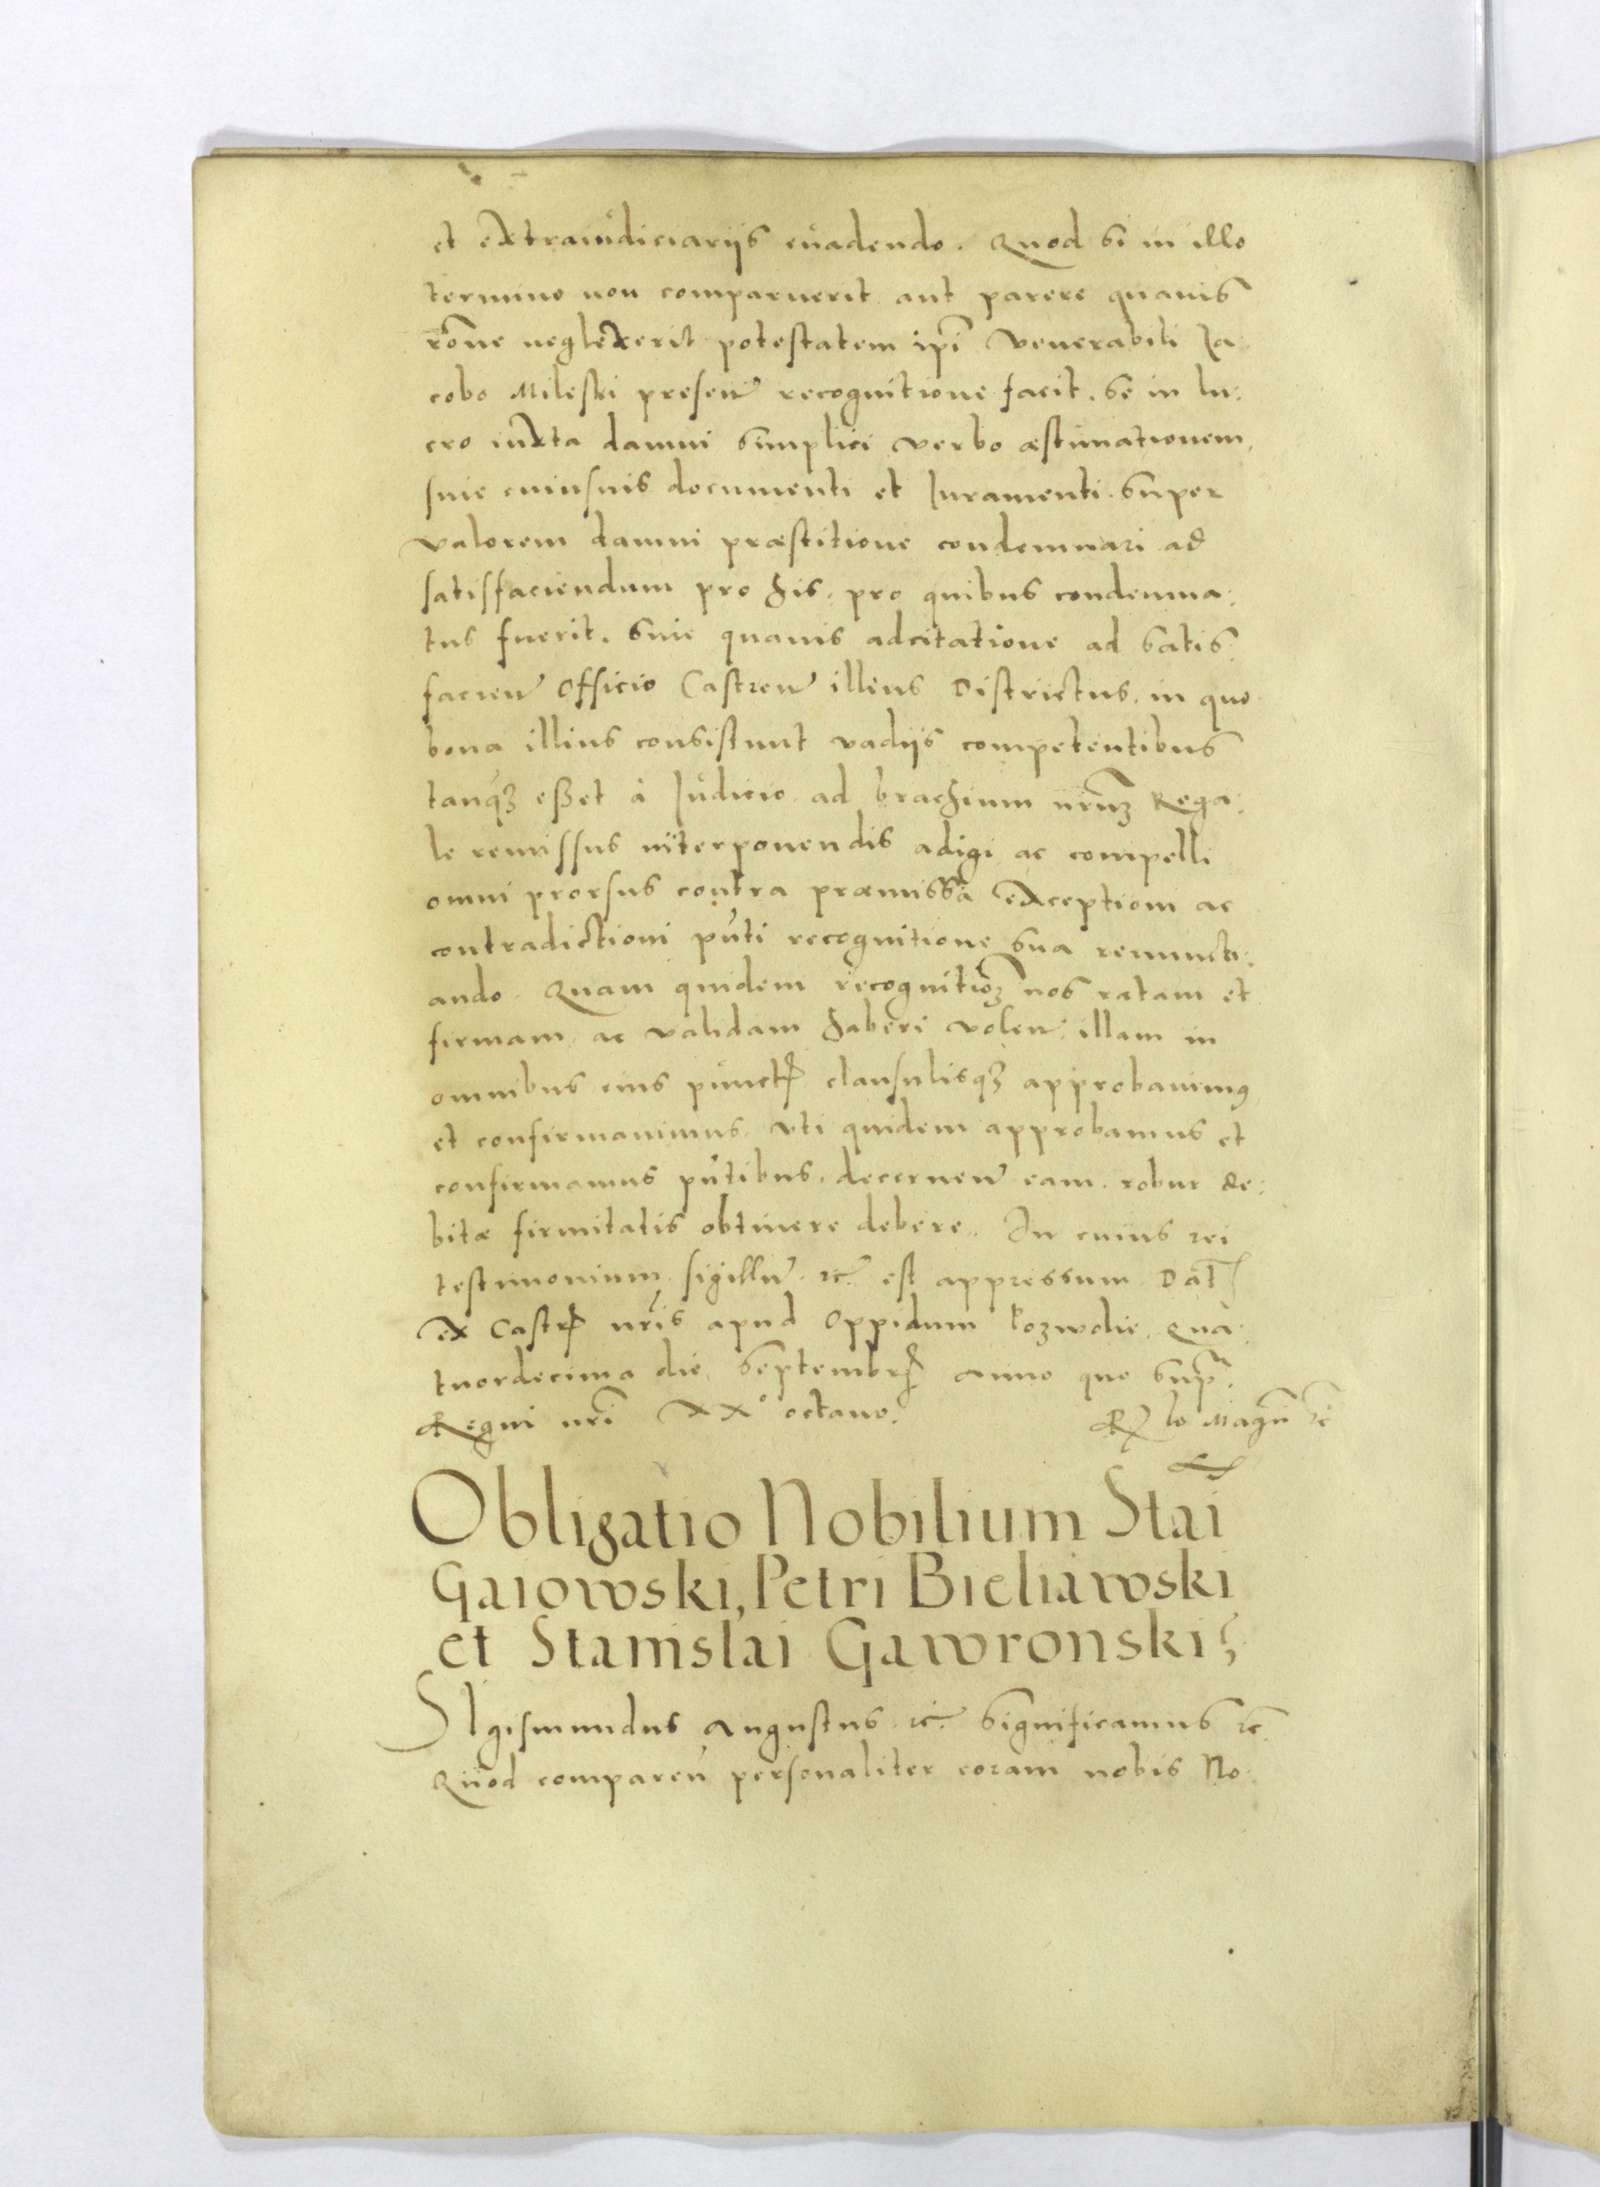 et extraiudiciariis euadendo. Quod si in illo
termino non comparuerit aut parere quauis
rõne neglexerit potestatem ipi Venerabili Ia
cobo Mileski presen recognitione facit, se in lu:
cro iuxta damni simplici verbo æstimationem,
sine cuiusuis documenti et Iuramenti super
valorem damni præstitione condemnari ad
satisfaciendum pro his, pro quibus condemna:
tus fuerit, sine quauis adcitatione ad satis
facien Officio Castren illius Districtus, in quo
bona illius consistunt vadiis competentibus
tanq3 esset à Iudicio ad brachium nrũ3 Rega:
le remissus interponendis adigi ac compelli
omni prorsus contra præmissa exceptiom ac
contradictioni pñti recognitione sua renuncti:
ando. Quam quidem recognitiõ3 nos ratam et
firmam, ac validam haberi volen, illam in
omnibus eius punct clausulisq3 approbauimꝰ
et confirmauimus, vti quidem approbamus et
confirmamus pñtibus, decernen eam robur de:
bitæ firmitatis obtinere debere. In cuius rei
testimonium sigillũ etc. est appressum. Dat
ex Castr nrĩs apud Oppidum Kozwolie, Qua
tuordecima die Septembr anno quo supr.
Regni nrĩ XXº octauo.
R lo Magñ etc
Obligatio Nobilium Stai
Gaiowski, Petri Bieliawski
et Stanislai Gawronski
SIgismundus Augustus etc. Significamus etc
Quod comparen personaliter coram nobis No